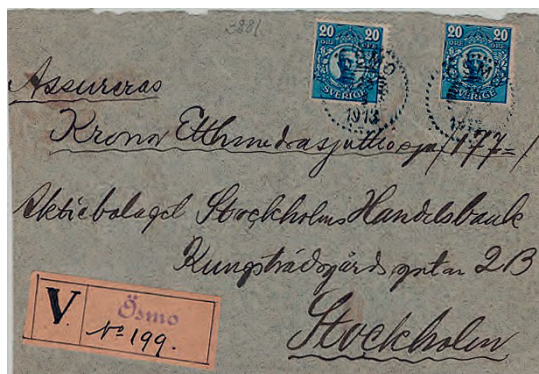 3881
20 20
ÖRE ÖRE
SVERIGE
20 20
ÖRE ÖRE
SVERIGE
ÖSMO
1913
ÖSMO
1913
Assureras
Kronor Etthundrasjuttiosju /177=/
Aktiebolaget Stockholms Handelsbank
Kungsträdgårdsgatan 2B
Stockholm
V.
Ösmo
No 199.